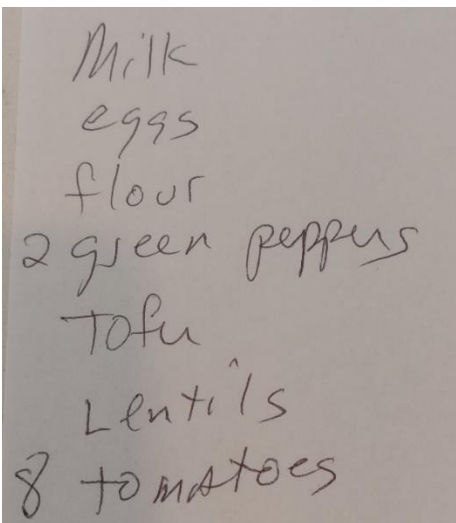 Milk
eggs
flour
2 green peppers
Tofu
Lentils
8 tomatoes